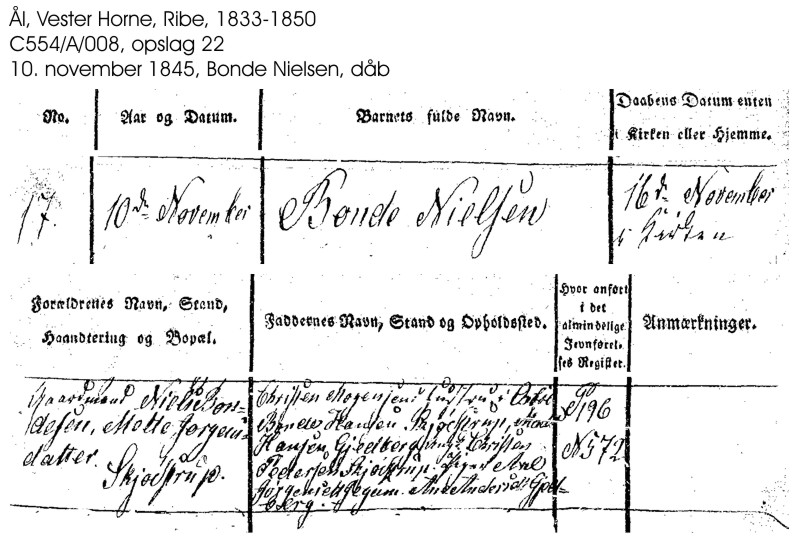 Ål, Vester Horne, Ribe, 1833-1850
C554/A/008, opslag 22
10. november 1845, Bonde Nielsen, dåb
No.
Aar og Datum.
Barnets fulde Navn.
Daabens Datum enten
i Kirken eller Hjemme.
17.
10de November
Bonde Nielsen
16de November
i Kirken
Forældrenes Navn, Stand,
Haandtering og Bopæl.
Faddernes Navn, Stand og Opholdssted.
Hvor anført
i det
almindelige
Jevnførel-
ses Register.
Anmærkninger.
Gaardmand Niels Bon-
desen, Mette Jørgens-
datter.
Skjødstrup.
Christen Mogensen
Bonde Hansen, Skjødstrup,
Hansen, Gjedbjerg Christen
Pedersen Skjødstrup. Ane
Jørgens Ane Anders Gjed-
bjerg.
P 196
N 572